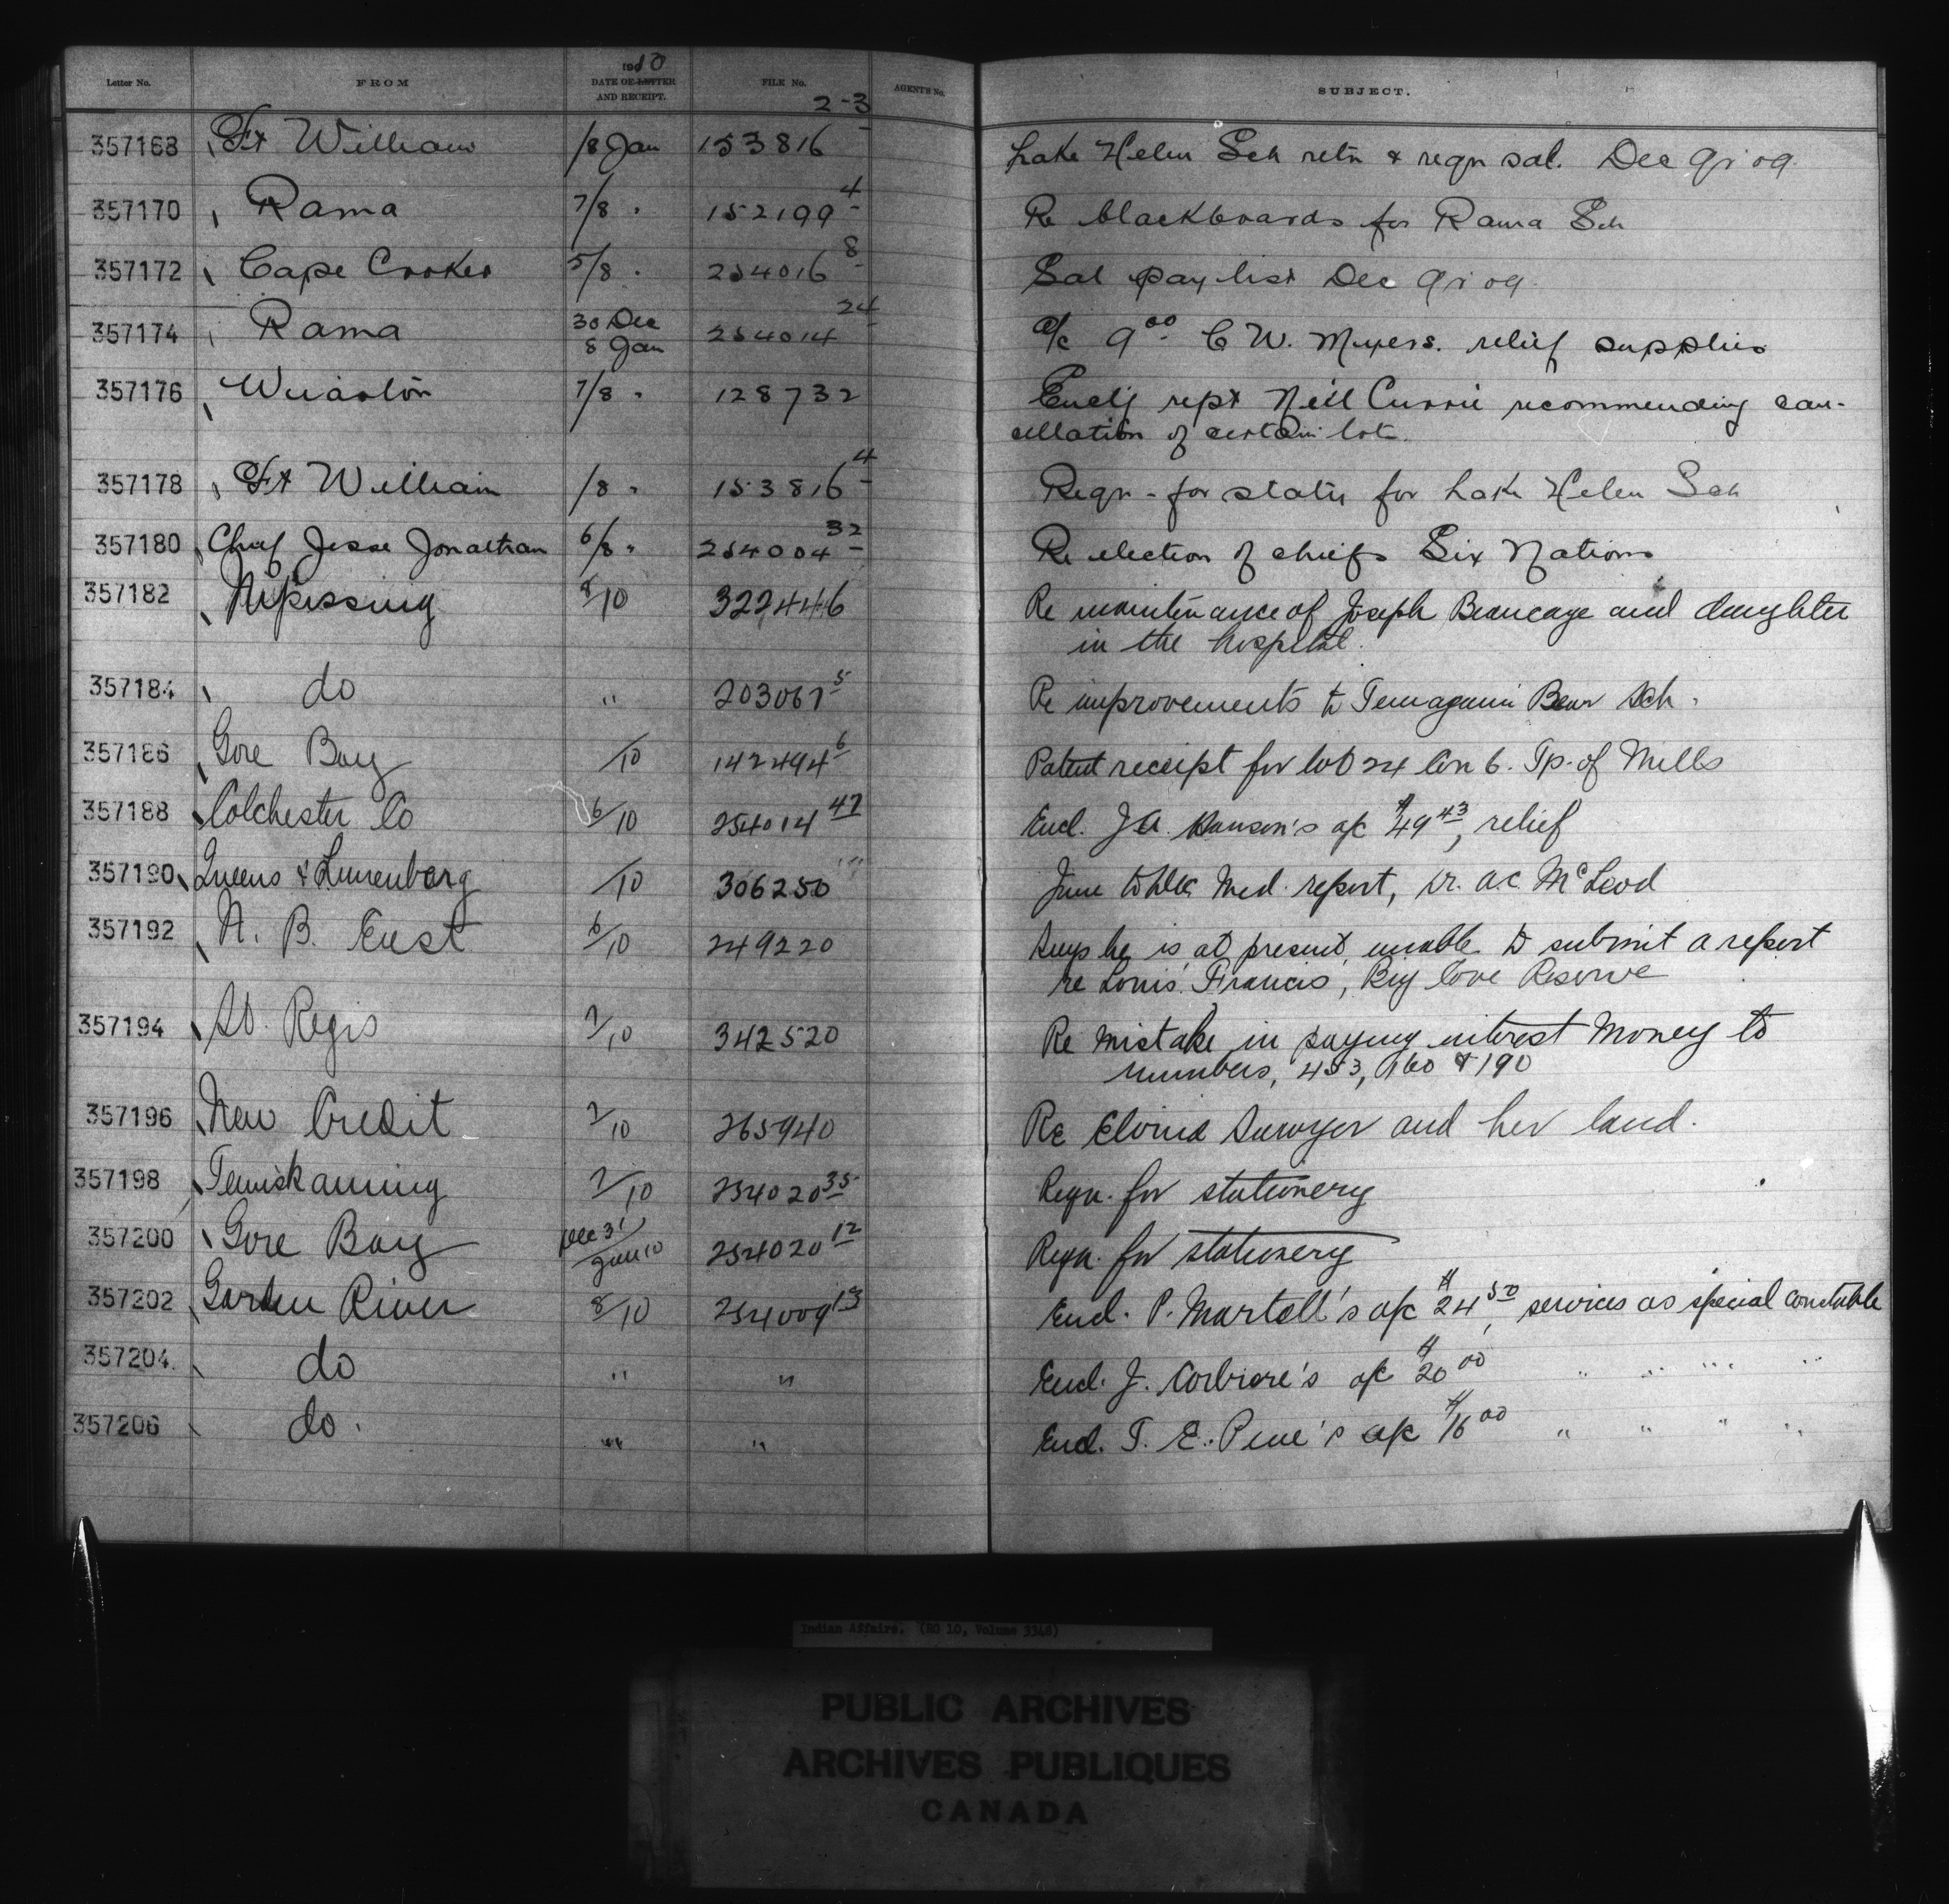 Letter No. FROM 1910 DATE OF LETTER AND RECEIPT. FILE No. AGENT'S No. SUBJECT.
357168 Ft William /8 Jan 153816 2-3 Lake Helen Sch retn & reqn sal. Dec qr 09.
357170 Rama 7/8 " 152199 4 Re blackboards for Rama Sch
357172 Cape Croker 5/8 " 254016 8 Sal pay list Dec qr 09.
357174 Rama 30 Dec 8 Jan 254014 24 a/c 9 00 C W. Myers. relief supplies
357176 Wiarton 7/8 " 128732 Encl'g rept Neil Currie recommending can-
cellation of certain lots.
357178 Ft William /8 " 153816 4 Reqn - for staty for Lake Helen Sch
357180 Chief Jesse Jonathan 6/8 " 254004 32 Re election of chiefs Six Nations
357182 Nipissing 8/10 322446 Re maintenance of Joseph Beaucage and daughter
in the hospital.
357184 do " 203067 5 Re improvements to Temagami Bear Sch.
357186 Gore Bay /10 142494 6 Patent receipt for lot 24 Con 6. Tp. of Mills
357188 Colchester Co 6/10 254014 47 Encl. J.A. Hanson's a/c $49 43, relief
357190 Queens & Lunenberg /10 306250 June to Dec Med. report, Dr. A.C. McLeod
357192 N. B. East 6/10 249220 Says he is at present, unable to submit a report
re Louis Francis, Big Cove Reserve
357194 St. Regis 7/10 342520 Re mistake in paying interest money to
numbers, 453, 160 & 190
357196 New Credit 7/10 265940 Re Elvina Sawyer and her land.
357198 Temiskaming 7/10 254020 35 Reqn. for stationery
357200 Gore Bay Dec 31/Jan 10 254020 12 Reqn. for stationery
357202 Garden River 8/10 254009 13 Encl. P. Martell's a/c $24 50, services as special constable
357204 do " " Encl. J. Corbiere's a/c $20 00 " " " "
357206 do. " " Encl. T. E. Pine's a/c $16 00 " " " "
Indian Affairs. (RG 10, Volume 3348)
PUBLIC ARCHIVES
ARCHIVES PUBLIQUES
CANADA